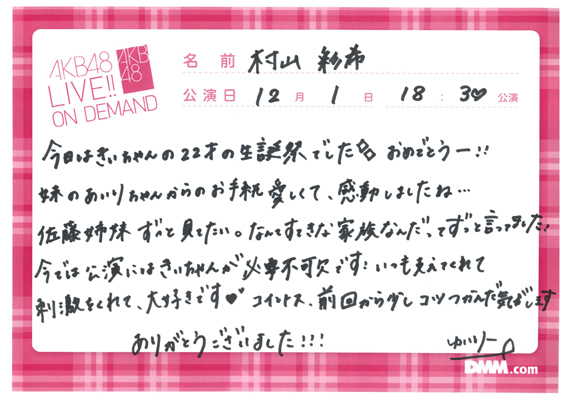 AKB48
LIVE!!
ON DEMAND
AKB
48
名 前 村山 彩希
公演日 12 月 1 日 18 : 30 公演
今日はきぃちゃんの22才の生誕祭でした おめでとうー!!
妹のあいりちゃんからのお手紙 愛しくて、感動しましたね…
佐藤姉妹 ずっと見てたい。なんてすてきな家族なんだ、ってずっと言ってました!
今では公演にはきぃちゃんが必要不可欠です! いつも支えてくれて
刺激をくれて、大好きです♥ コイントス、前回から少しコツつかんだ気がします
ありがとうございました!!!
ゆいりー
DMM.com